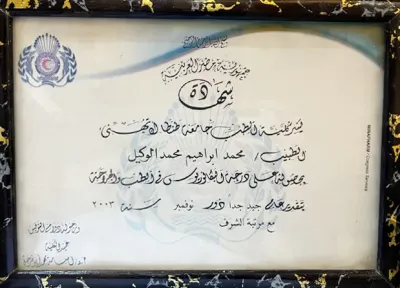 جمهورية مصر العربية
شهادة
يسر كلية الطب جامعة طنطا ان تهنئ
الطبيب / محمد ابراهيم محمد الوكيل
بحصوله على درجة البكالوريوس فى الطب والجراحة
بتقدير عام جيد جدا دور نوفمبر سنة ٢٠٠٣
مع مرتبة الشرف
عميد الكلية